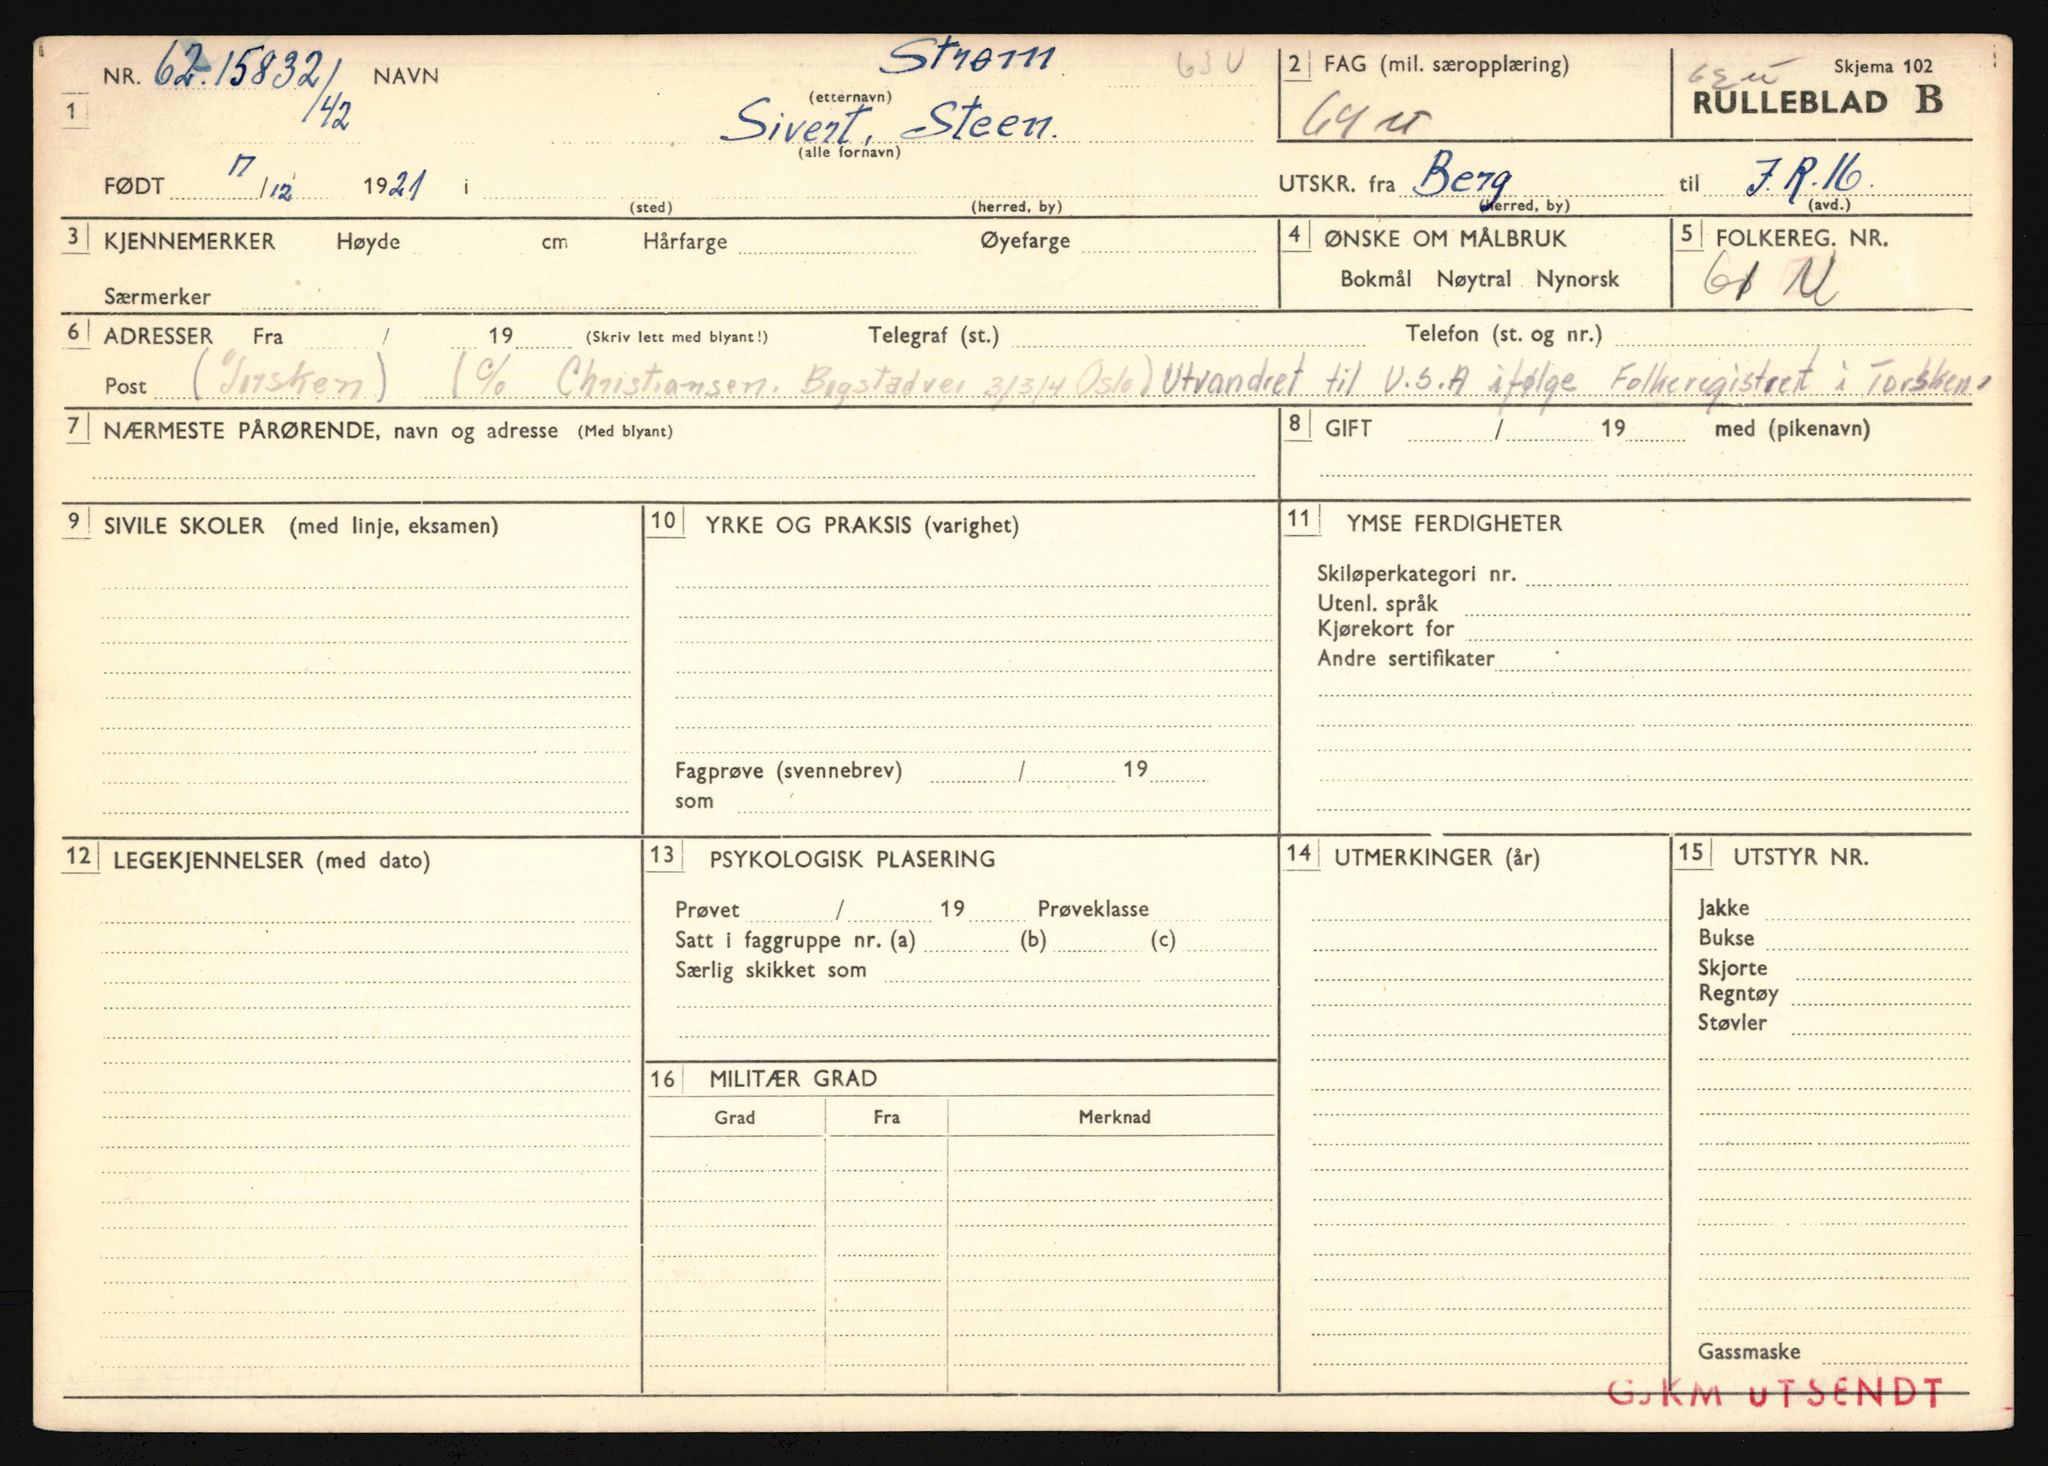 NR. 62.15832/42 NAVN Strøm 63 U
1 (etternavn)
Sivert, Steen.
(alle fornavn)
FØDT 17/12 1921 i
(sted) (herred, by)
2 FAG (mil. særopplæring)
64 U
63 U Skjema 102
RULLEBLAD B
UTSKR. fra Berg til J.R.16.
(herred, by) (avd.)
3 KJENNEMERKER Høyde cm Hårfarge Øyefarge
Særmerker
4 ØNSKE OM MÅLBRUK
Bokmål Nøytral Nynorsk
5 FOLKEREG. NR.
61 U
6 ADRESSER Fra / 19 (Skriv lett med blyant!) Telegraf (st.) Telefon (st. og nr.)
Post (Torsken) (c/o Christiansen. Bogstadvei 3/3/4 Oslo) Utvandret til U.S.A ifølge Folkeregistret i Torsken.
7 NÆRMESTE PÅRØRENDE, navn og adresse (Med blyant)
8 GIFT / 19 med (pikenavn)
9 SIVILE SKOLER (med linje, eksamen)
10 YRKE OG PRAKSIS (varighet)
Fagprøve (svennebrev) / 19
som
11 YMSE FERDIGHETER
Skiløperkategori nr.
Utenl. språk
Kjørekort for
Andre sertifikater
12 LEGEKJENNELSER (med dato)
13 PSYKOLOGISK PLASERING
Prøvet / 19 Prøveklasse
Satt i faggruppe nr. (a) (b) (c)
Særlig skikket som
14 UTMERKINGER (år)
15 UTSTYR NR.
Jakke
Bukse
Skjorte
Regntøy
Støvler
Gassmaske
16 MILITÆR GRAD
Grad Fra Merknad
GJKM UTSENDT